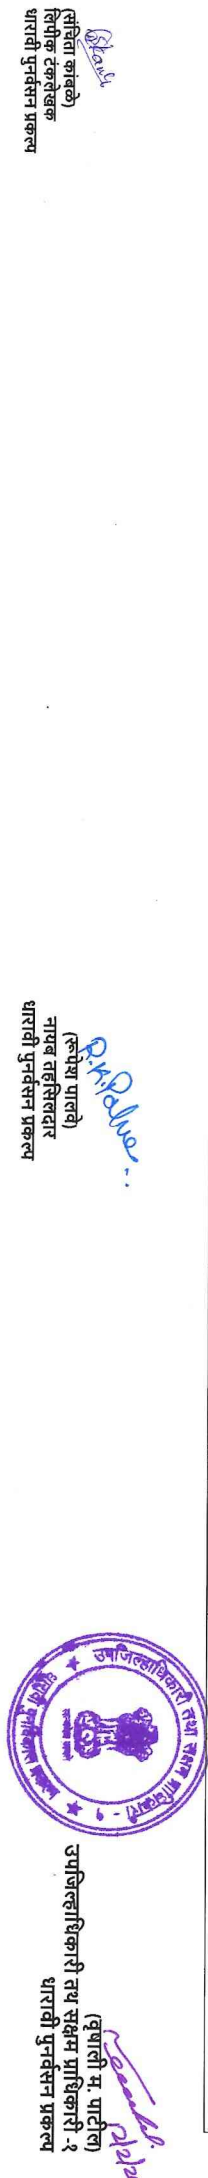 (संचिता कांबळे)
लिपीक टंकलेखक
धारावी पुनर्वसन प्रकल्प
R.K.Palve...
(रूपेश पालवे)
नायब तहसिलदार
धारावी पुनर्वसन प्रकल्प
उपजिल्हाधिकारी तथा सक्षम प्राधिकारी - १
12/2/2
(वृषाली म. पाटील)
उपजिल्हाधिकारी तथ सक्षम प्राधिकारी -२
धारावी पुनर्वसन प्रकल्प